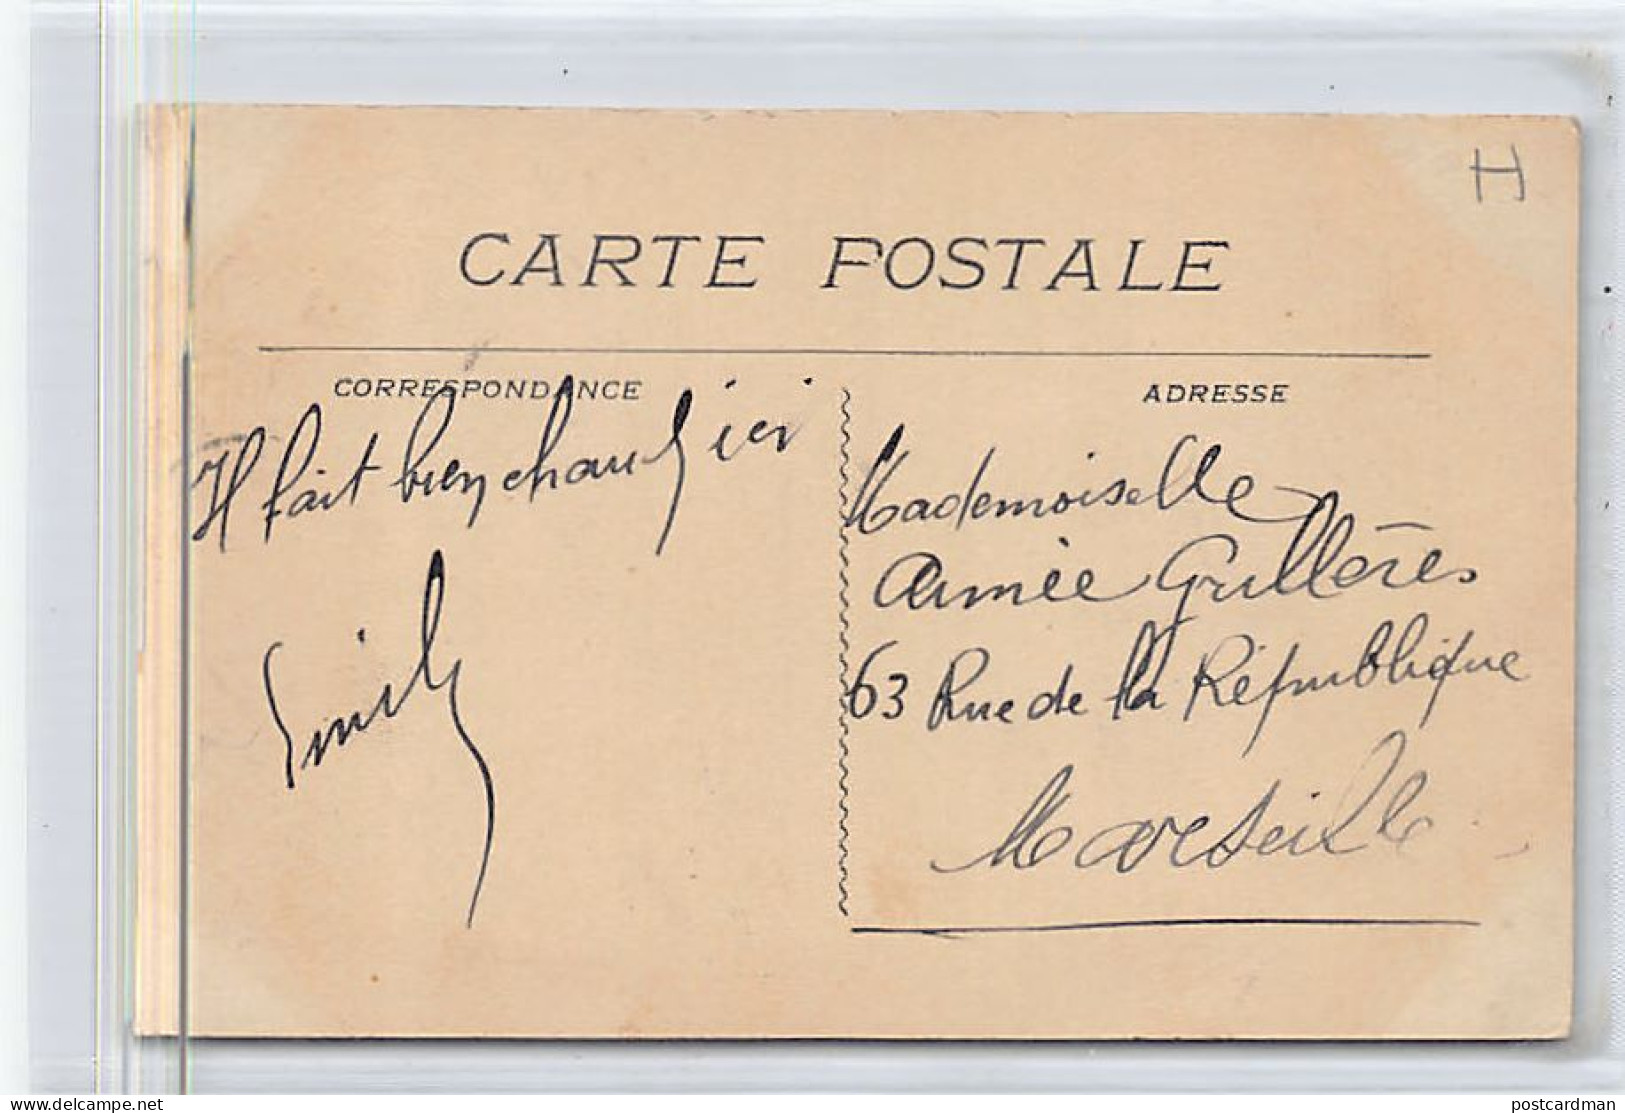 H
CARTE POSTALE
CORRESPONDANCE
ADRESSE
Il fait bien chaud ici
Mademoiselle
Aimée
63 Rue de la République
Marseille
delcampe.net
postcardman